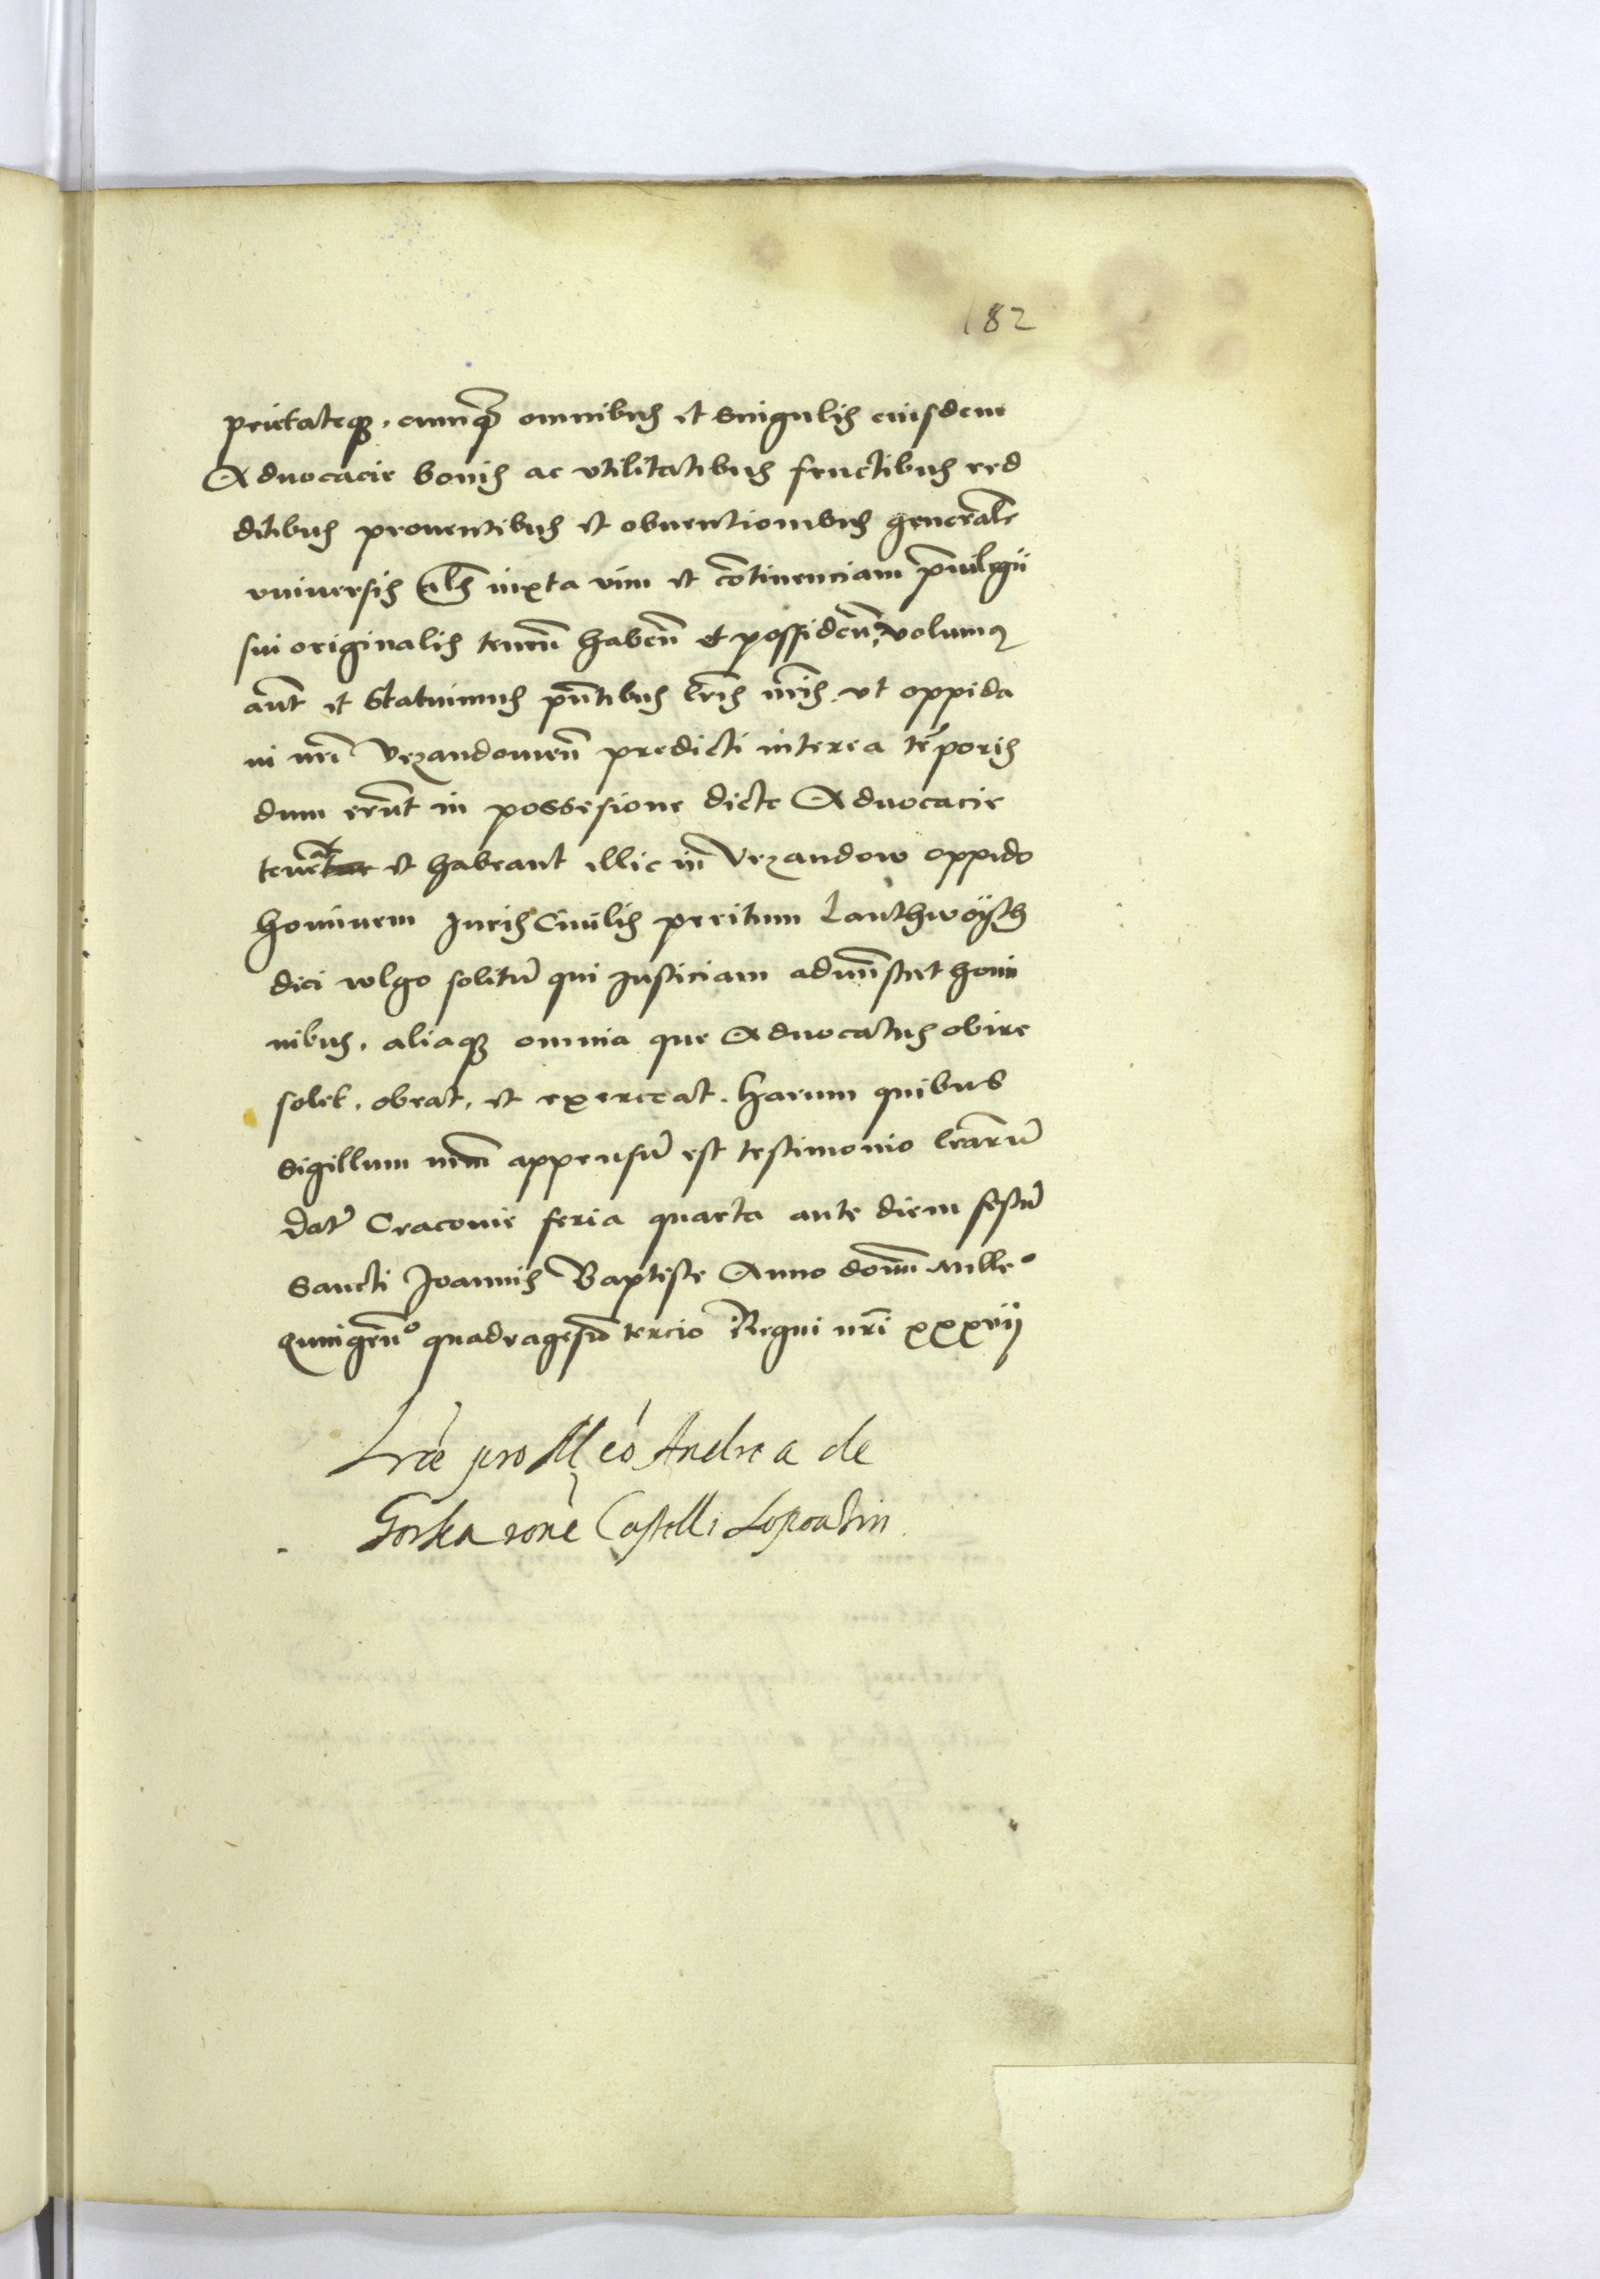 182
prietateque, cumque omnibus et singulis eiusdem
Advocacie bonis ac utilitatibus fructibus red
ditibus proventibus et obventionibus generalr
universis als iuxta vim et continenciam privilegii
sui originalis tenen haben et possiden, volumus
aut et statuimus pntibus lris nris ut oppida
ni nri Vrzandowen predicti interea temporis
dum erunt in possessione dicte Advocacie
teneat et habeant illic in Vrzandow oppido
hominem Juris Civilis peritum Lanthwoysth
dici wlgo solitu qui Justiciam administret homi
nibus, aliaque omnia que Advocatus obire
solet, obeat, et exerceat. Harum quibus
Sigillum nrm appensu est testimonio lraru
Dat Cracovie feria quarta ante diem festu
Sancti Joannis Baptiste Anno domini Mille°
Quingen° quadragesio tercio Regni nri xxxvii
Lræ pro Mco Andrea de
Gorka rone Castelli